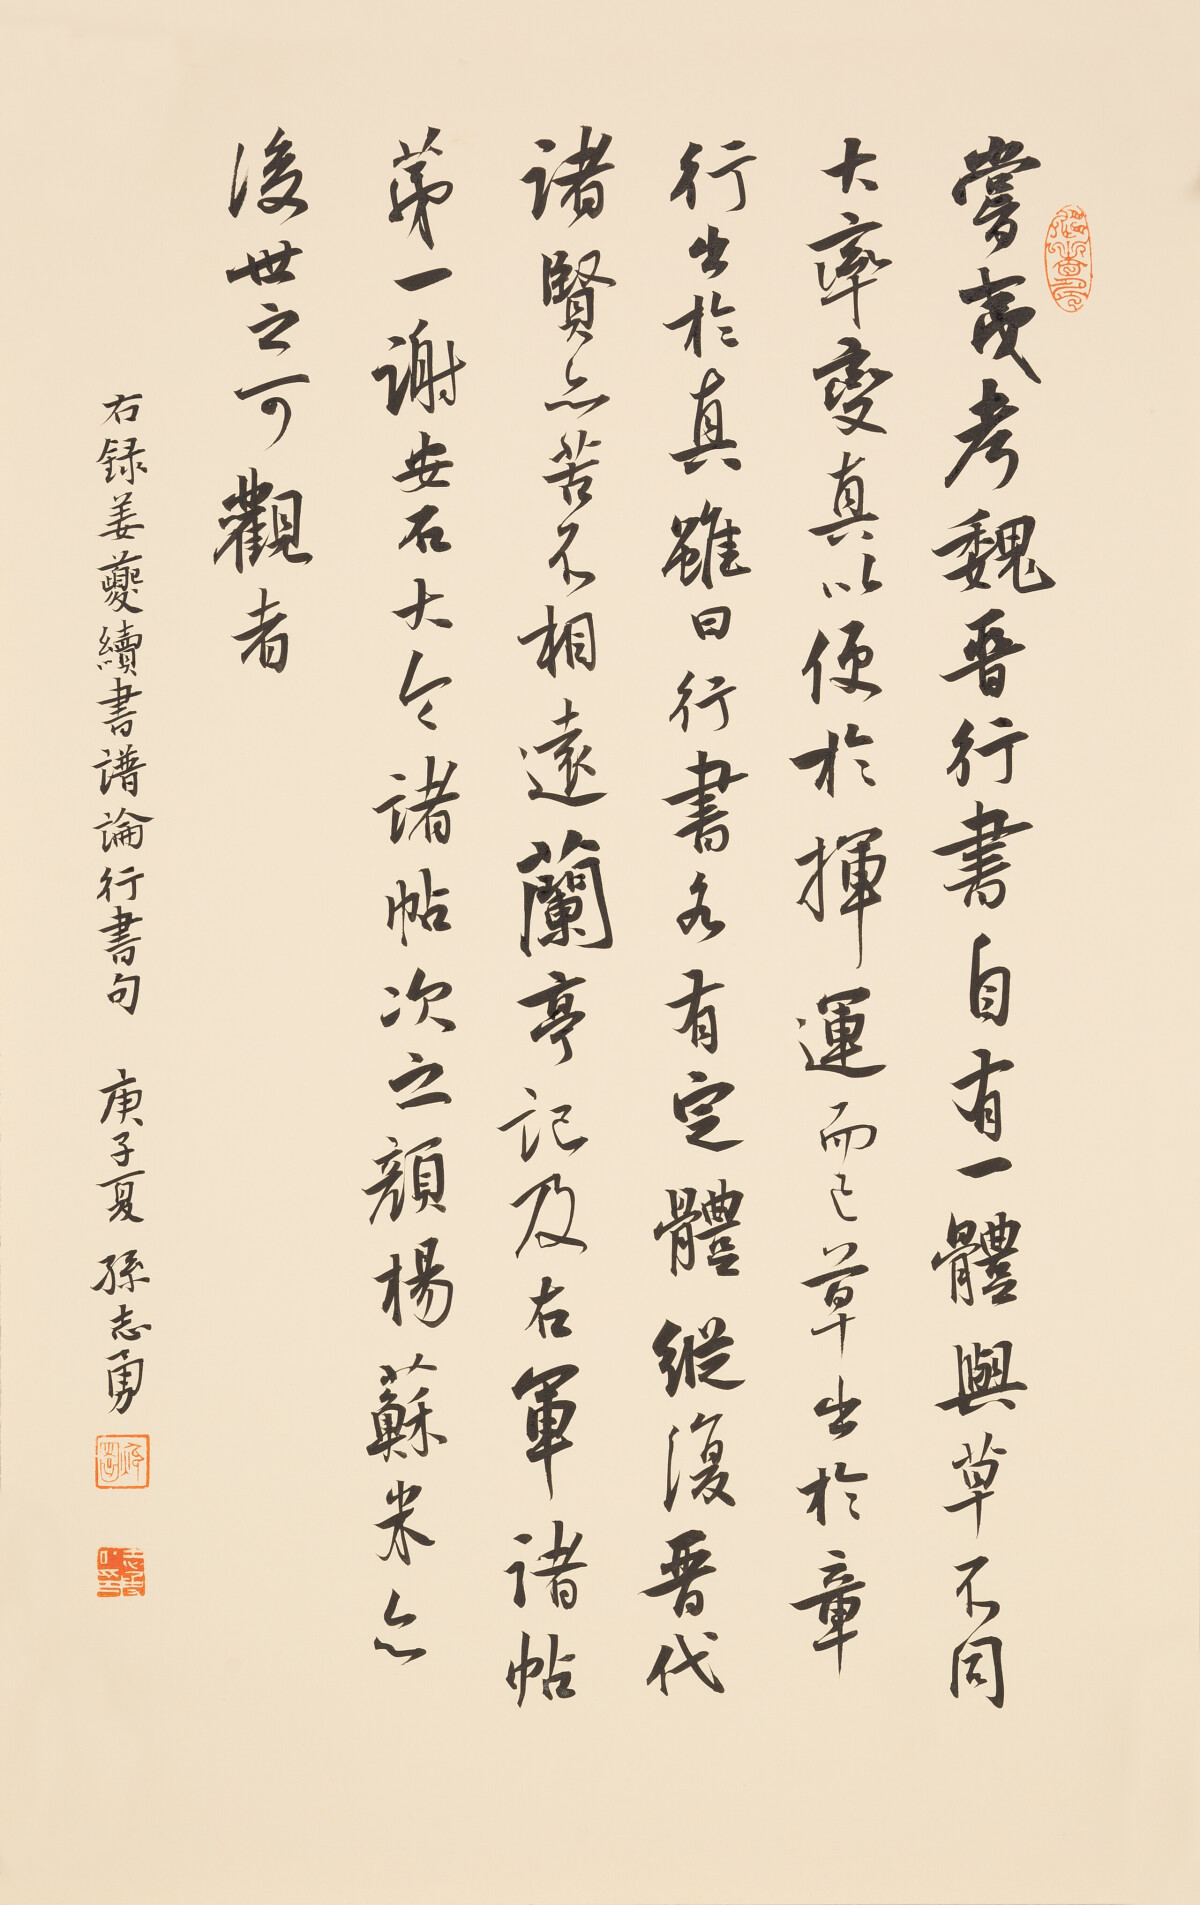 嘗夷考魏晉行書自有一體與草不同
大率變真以便於揮運而已草出於章
行出於真雖曰行書各有定體縱復晉代
諸賢亦苦不相遠蘭亭記及右軍諸帖
第一謝安石大令諸帖次之顏楊蘇米亦
後世之可觀者
右録姜夔續書譜論行書句 庚子夏 孫志勇